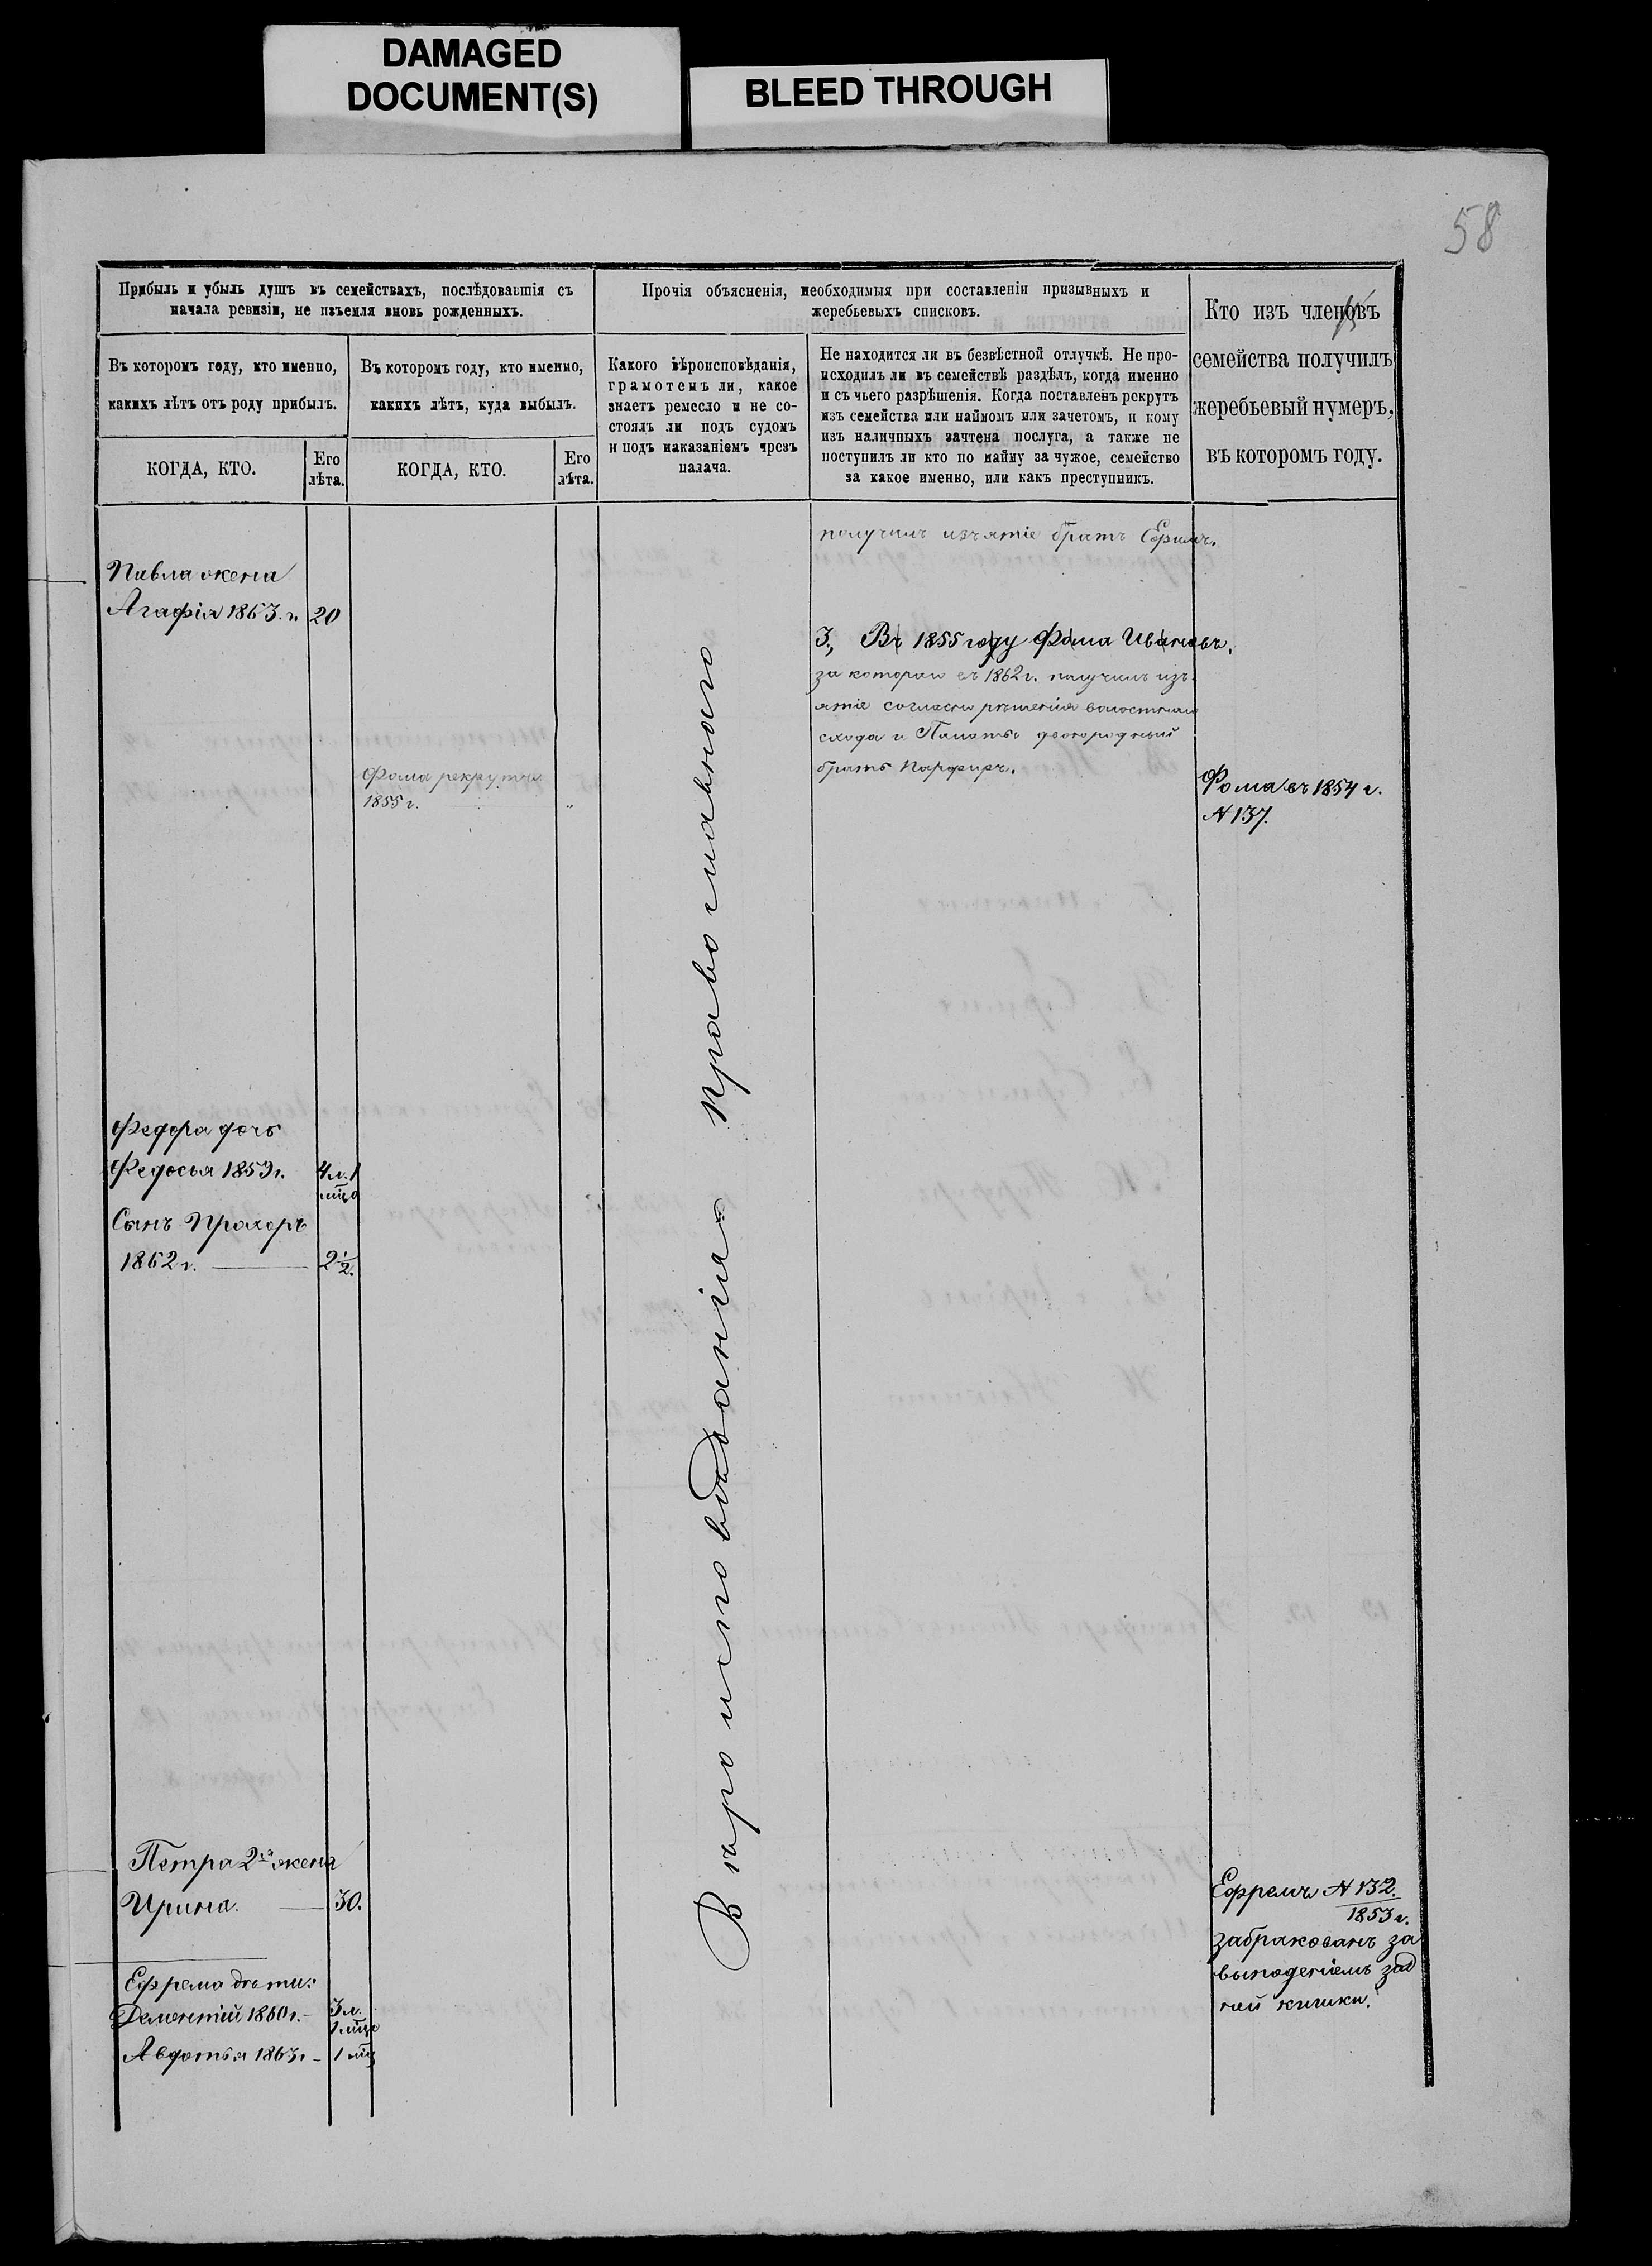 DAMAGED
DOCUMENT(S)
BLEED THROUGH
58
Прибыль и убыль душъ въ семействахъ, послѣдовавшія съ
начала ревизіи, не изъемля вновь рожденныхъ.
Прочія объясненія, необходимыя при составленіи призывныхъ и
жеребьевыхъ списковъ.
Кто изъ членовъ
семейства получилъ
жеребьевый нумеръ,
въ которомъ году.
Въ которомъ году, кто именно,
какихъ лѣтъ отъ роду прибылъ.
Въ которомъ году, кто именно,
какихъ лѣтъ, куда выбылъ.
Какого вѣроисповѣданія,
грамотенъ ли, какое
знаетъ ремесло и не со-
стоялъ ли подъ судомъ
и подъ наказаніемъ чрезъ
палача.
Не находится ли въ безвѣстной отлучкѣ. Не про-
исходилъ ли въ семействѣ раздѣлъ, когда именно
и съ чьего разрѣшенія. Когда поставленъ рекрутъ
изъ семейства или наймомъ или зачетомъ, и кому
изъ наличныхъ зачтена послуга, а также не
поступилъ ли кто по найму за чужое, семейство
за какое именно, или какъ преступникъ.
КОГДА, КТО.
Его
лѣта.
КОГДА, КТО.
Его
лѣта.
получилъ изъятіе братъ
Павла жена
Агафія 1863 г. 20
3., Въ 1855 году Фома Ивановъ,
за котораго въ 1862 г. получилъ изъ-
ятіе согласно рѣшенія волостнаго
схода и Палаты двоюродный
братъ Парфиръ.
Фома рекрутъ
1855 г. „
Фома въ 1854 г.
N 137.
Вѣроисповѣданія православнаго
Федора дочь
Федосья 1859 г. 4 л. 1
мѣсъ
Сынъ Прохоръ
1862 г. 2½.
Петра 2я жена
Ирина. 30.
Ефрема дѣти:
Дементій 1860 г. 3 л.
1 мѣсъ
Авдотья 1863 г. 1 мѣс
Ефремъ N 132.
1853 г.
забракованъ за
выпаденіемъ зад
ней кишки.